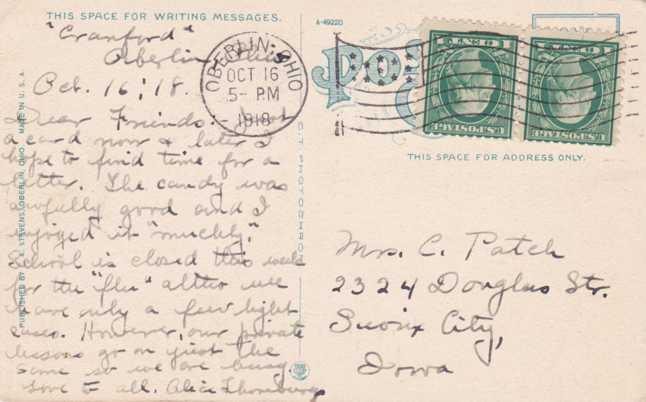 THIS SPACE FOR WRITING MESSAGES.
"Cranford"
Oberlin, Ohio
Oct. 16, '18.
Dear Friends: Just
a card now & later I
hope to find time for a
letter. The candy was
awfully good and I
enjoyed it "muchly."
School is closed this week
for the "flu" altho we
have only a few light
cases. However, our private
lessons go on just the
same so we are busy.
Love to all. Alice Thornburg
PUBLISHED BY A. E. STEVENS, OBERLIN, OHIO. MADE IN U. S. A.
A-49220
OBERLIN, OHIO
OCT 16
5- PM
1918
Pos
C.T. PHOTOCHROM
U.S. POSTAGE
1 CENTS 1
U.S. POSTAGE
CENTS 1
THIS SPACE FOR ADDRESS ONLY.
Mrs. C. Patch
2324 Douglas Str.
Sioux City,
Iowa